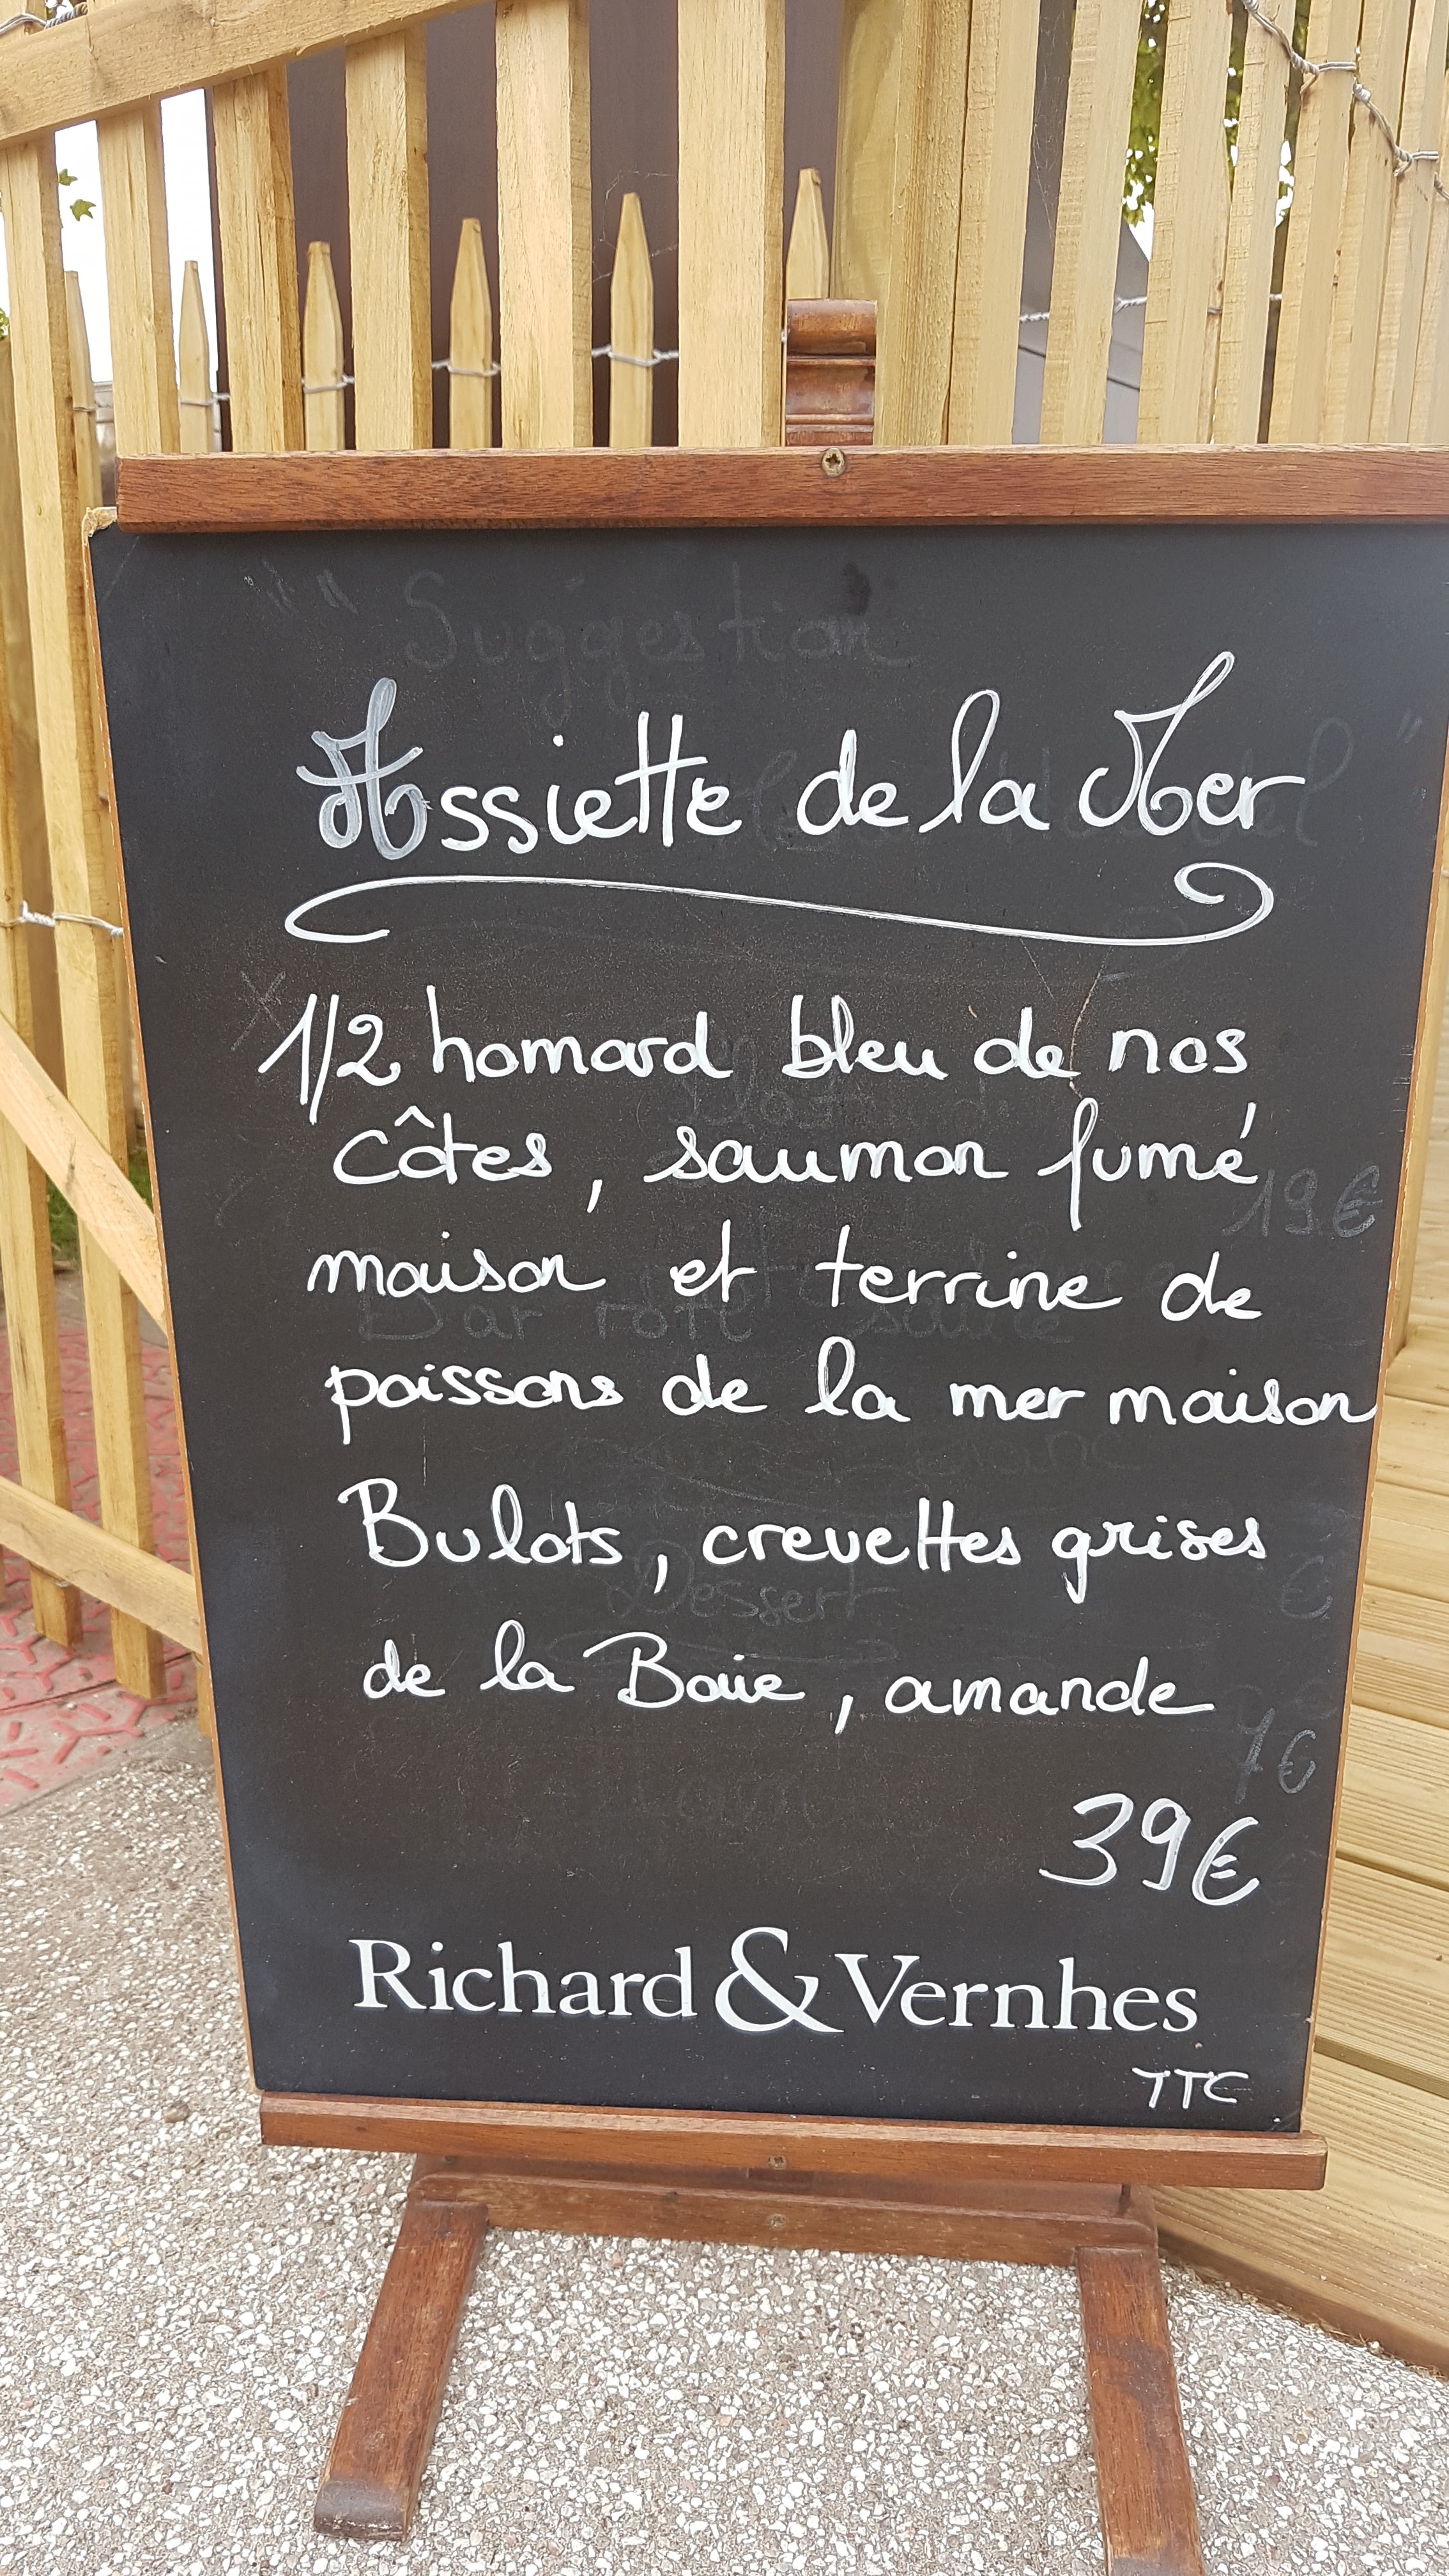 Suggestion
Assiette de la Mer
1/2 homard bleu de nos
côtes, saumon fumé
19€
maison et terrine de
Bar rôti sauce
poissons de la mer maison
Bulots, crevettes grises
Dessert
de la Baie, amande
7€
39€
Richard & Vernhes
TTC